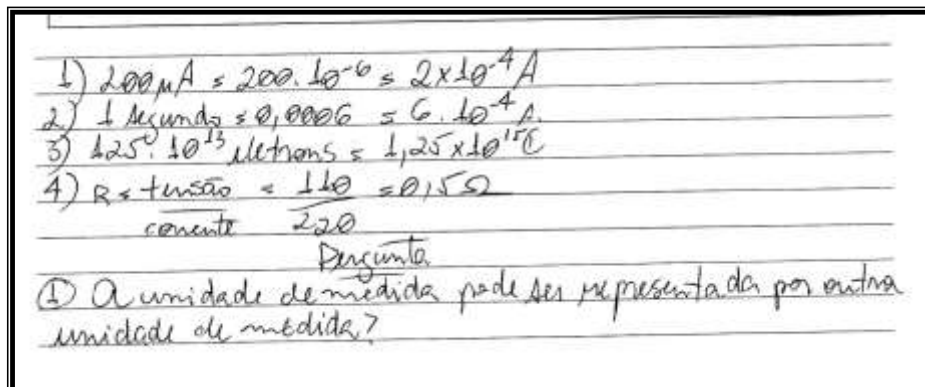 1) 200µA = 200.10⁻⁶ = 2x10⁻⁴A
2) 1 segundo = 0,0006 = 6.10⁻⁴A.
3) 125.10¹³ eletrons = 1,25x10¹⁵C
4) R = tensão = 110 = 0,5Ω
corrente 220
Pergunta
① A unidade de medida pode ser representada por outra
unidade de medida?